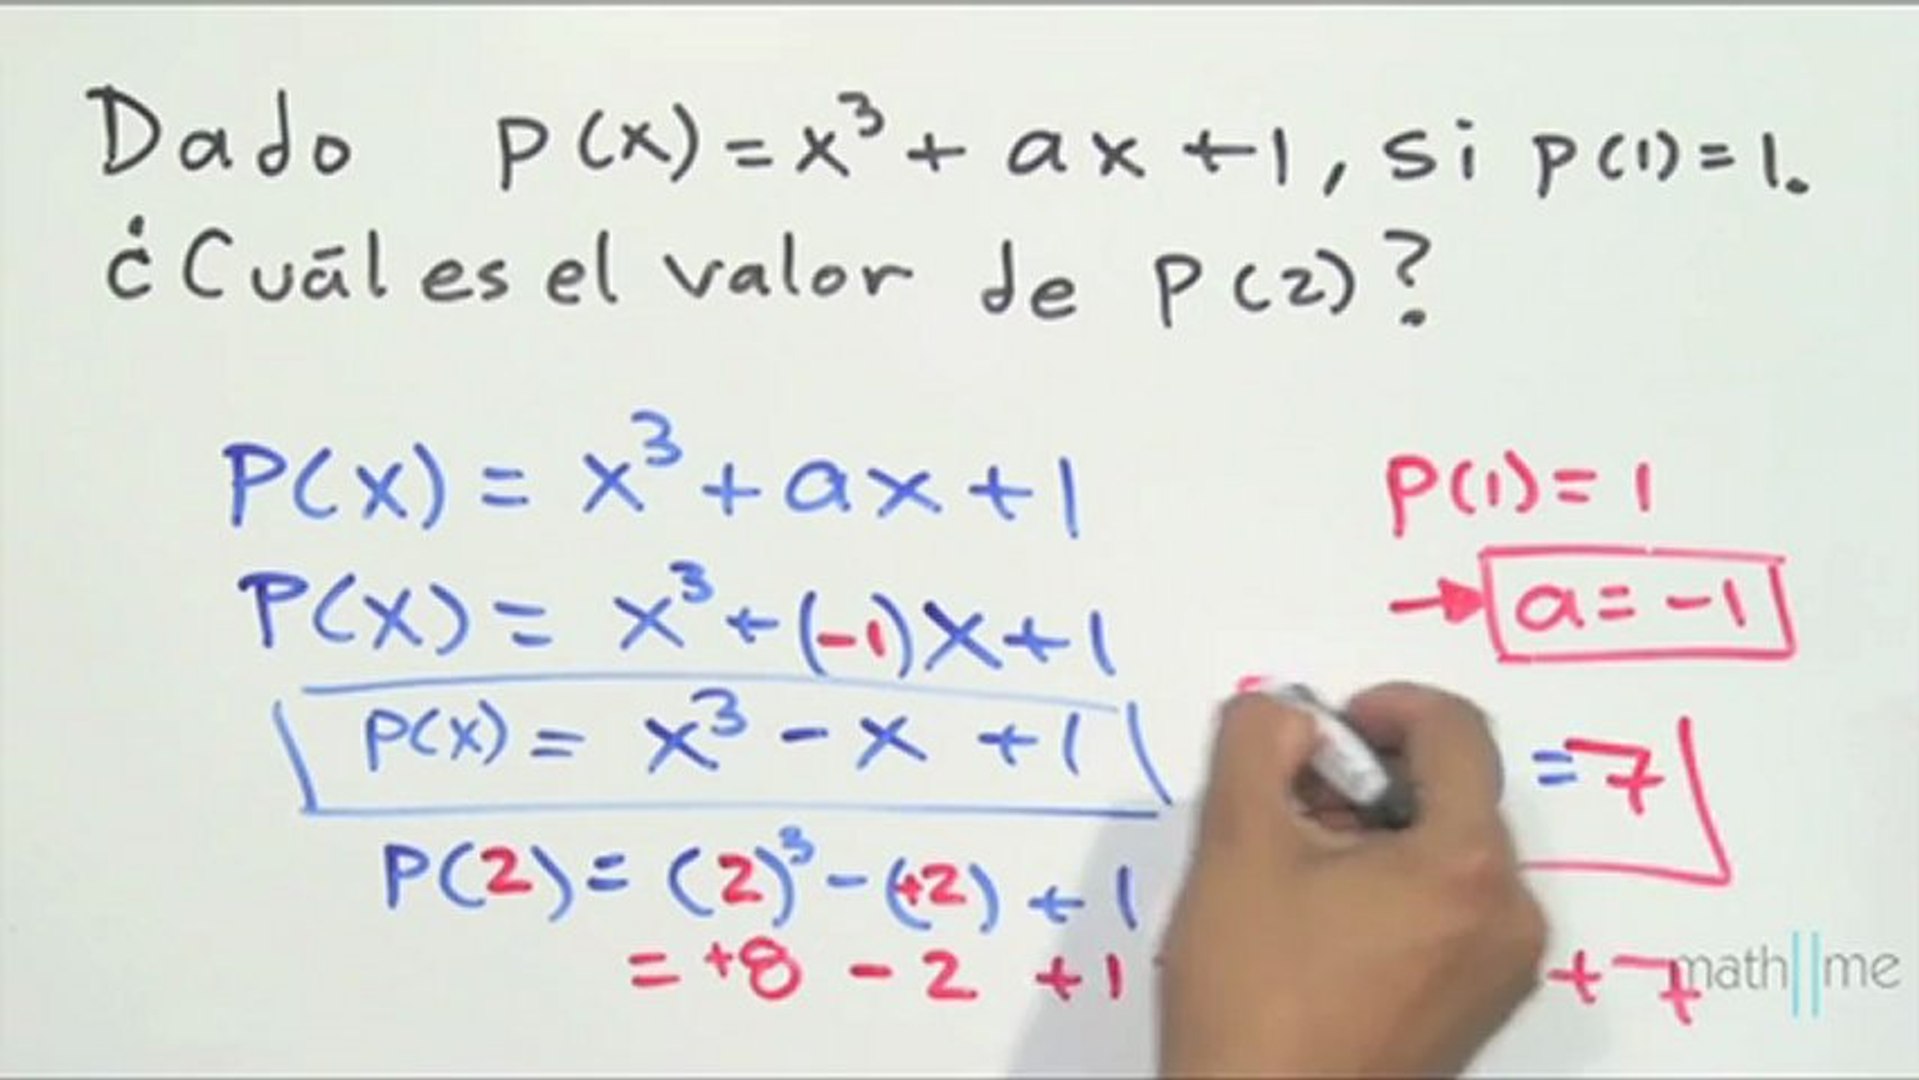 Dado P(x) = x³ + ax + 1, si P(1) = 1.
¿Cuál es el valor de P(2)?
P(x) = x³ + ax + 1
P(x) = x³ + (-1)x + 1
P(x) = x³ - x + 1
P(2) = (2)³ - (+2) + 1
= +8 - 2 + 1
P(1) = 1
a = -1
= 7
+7
math||me